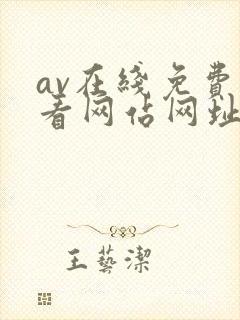 av在线免费
看网佔网址
王藝潔